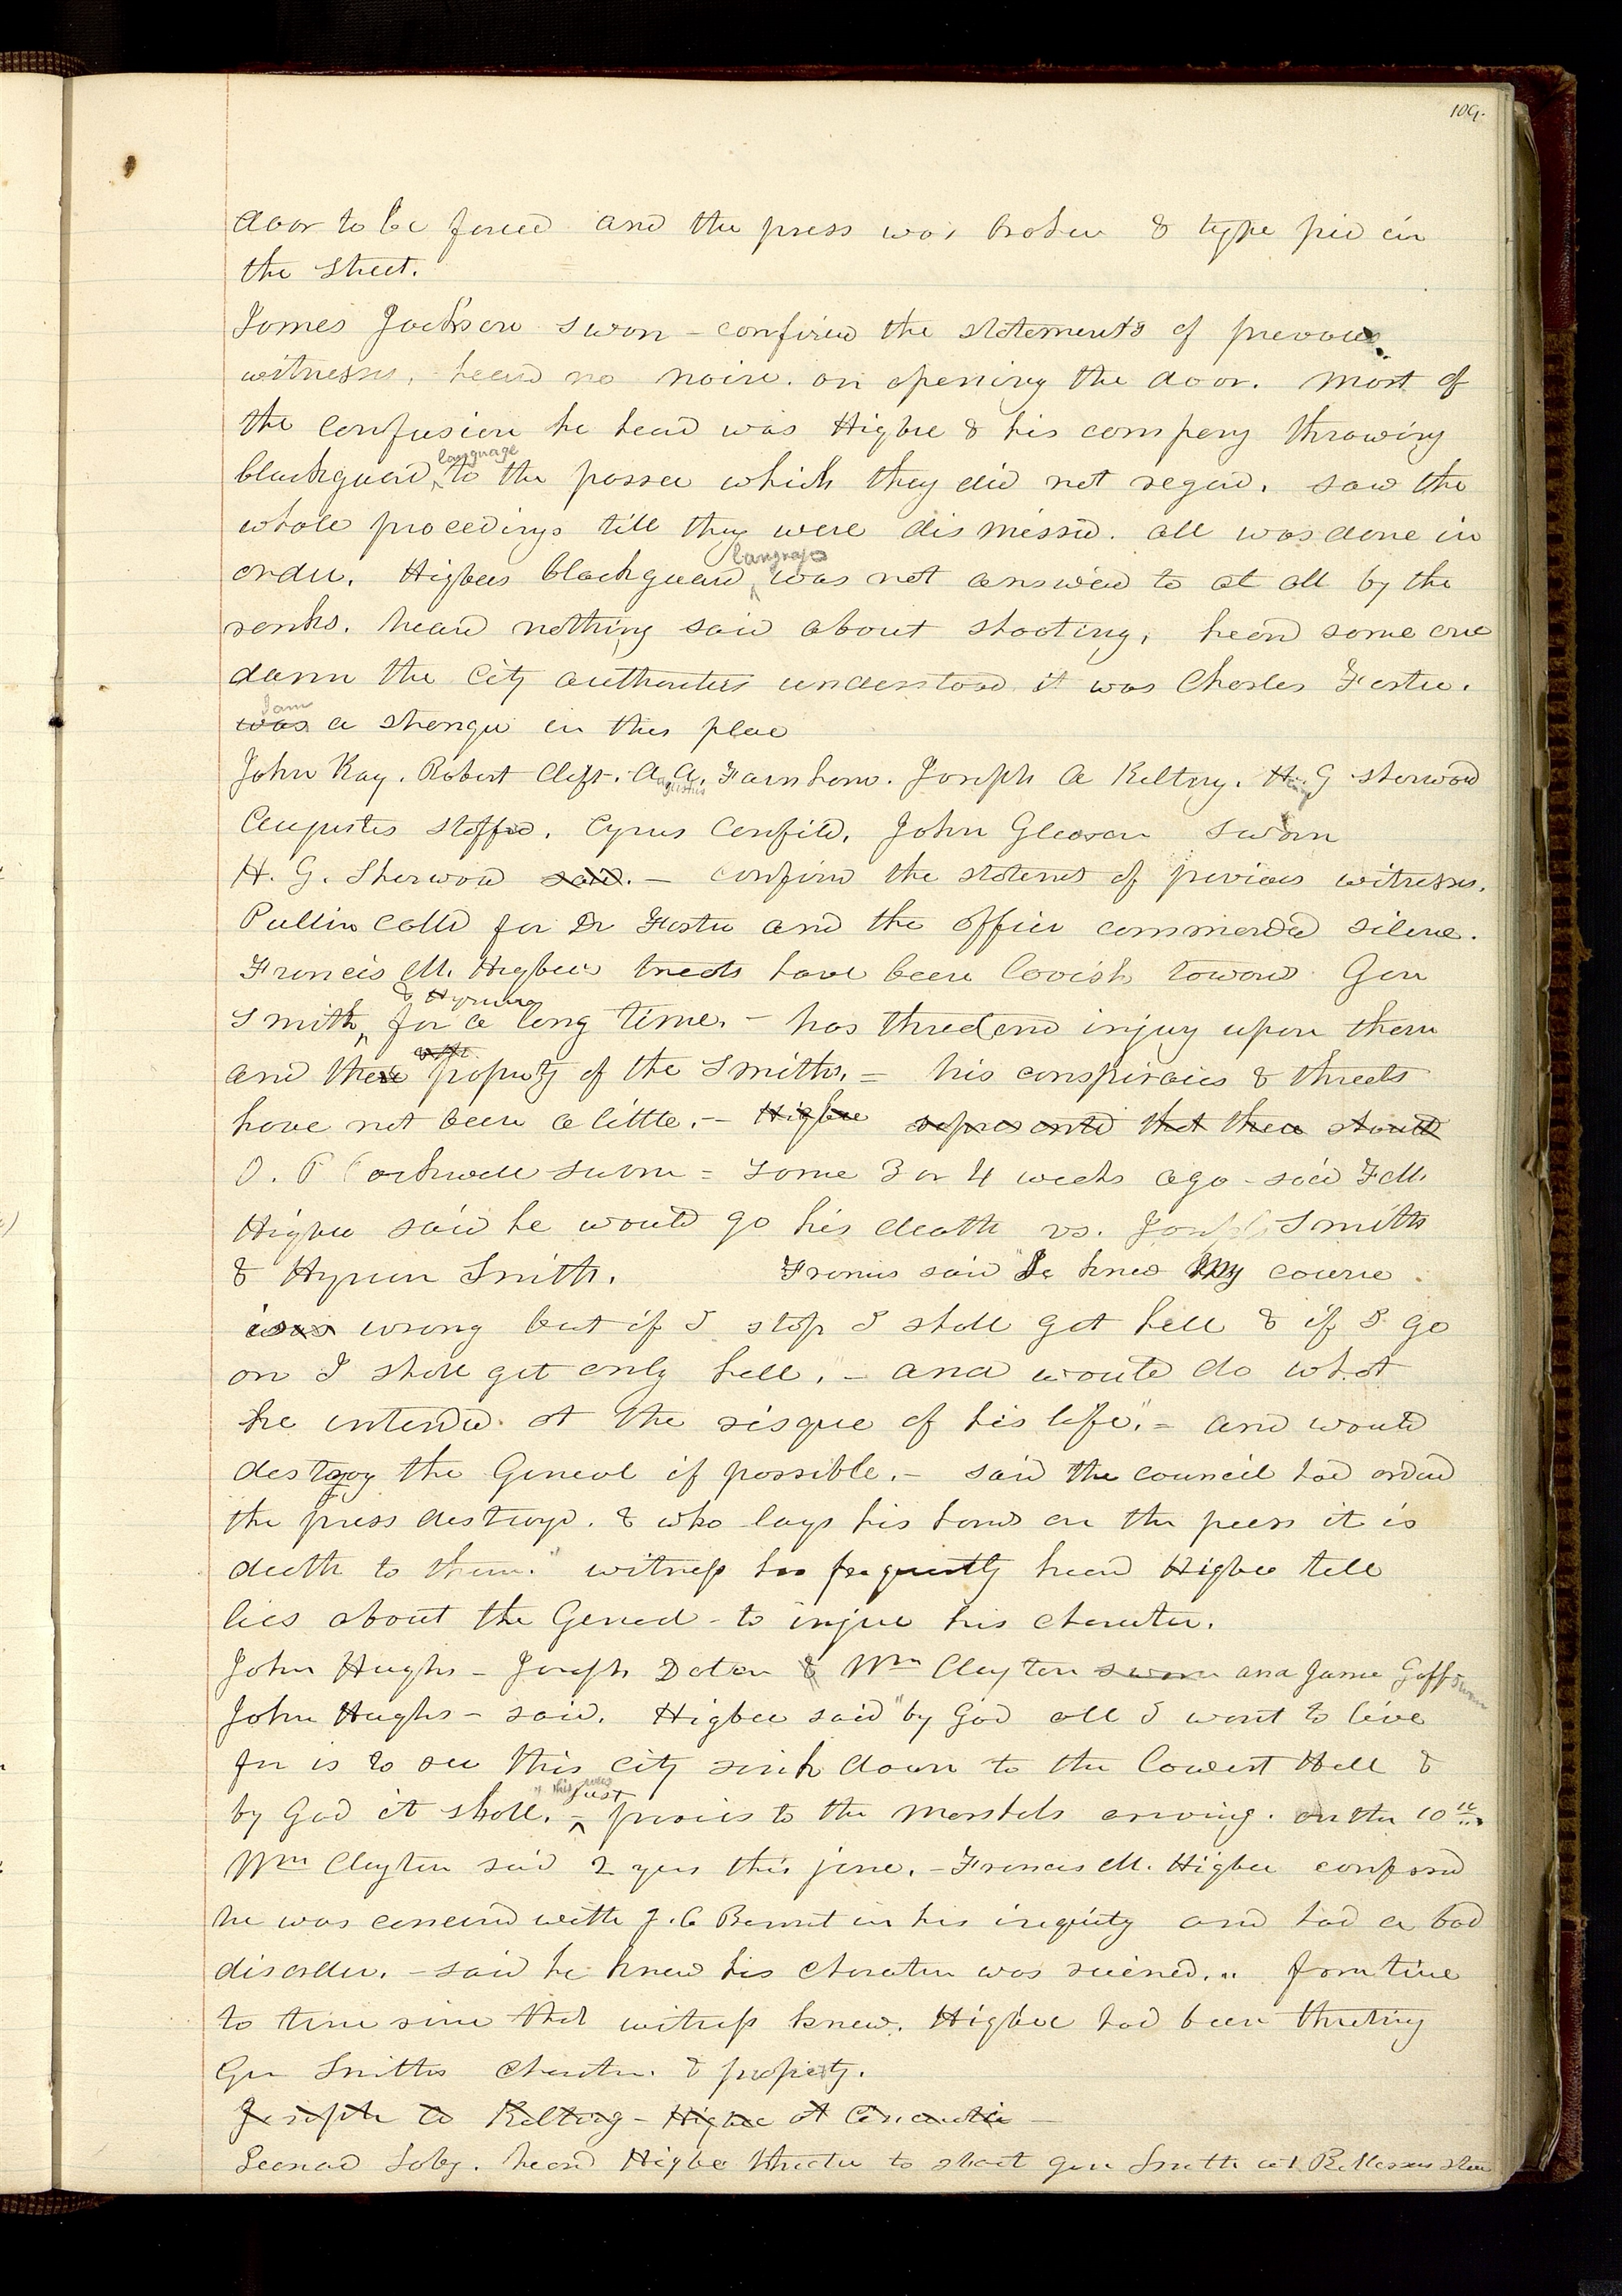 109.
door to be forced and the press was broken & type pied in
the street.
James Jackson sworn - confirmed the statements of previous
witnesses, heard no noise. on opening the door. most of
the confusion he heard was Higbee & his company throwing
blackguard language to the possee which they did not regard. saw the
whole proceedings till they were dismissed. all was done in
order. Higbees blackguard language was not answered to at all by the
ranks. heard nothing said about shooting, heard some one
damn the city authorities understood it was Charles Foster.
was I am a stranger in this place
John Kay. Robert Clift. A Augustus A. Farnham. Joseph A Kelting. Henry G Sherwood
Augustus Stafford. Cyrus Canfield. John Gleason sworn
H. G. Sherwood said. - confirmed the statements of previous witnesses.
Pullin called for Dr Foster and the officer commanded silence.
Francis M. Higbees threats have been lavish towards Gen
Smith & Hyrum for a long time. - has threatened injury upon them
and the property of the Smiths. = his conspiracies & threats
have not been a little. - Higbee represented that there should
O. P Rockwell sworn = some 3 or 4 weeks ago - said F M.
Higbee said he would go his death vs. Joseph Smith
& Hyrum Smith. Francis said "I know my course
is was wrong but if I stop I shall get hell & if I go
on I shall get only hell," - and would do what
he intended at the risque of his life". = and would
destroy the General if possible. - said the council had ordered
the press destroyed. & who lays his hands on the press it is
death to them." witness has frequently heard Higbee tell
lies about the General - to injure his character.
John Hughs - Joseph Daton & Wm Clayton sworn and James Goff sworn
John Hughs - said. Higbee said "by God all I want to live
for is to see this city sink down to the lowest Hell &
by God it shall. " this was just previous to the Marshals arriving. on the 10th.
Wm Clayton said 2 years this june. - Francis M. Higbee confessed
he was concerned with J. C Bennet in his iniquity and had a bad
disorder. - said he knew his character was ruined. .. from time
to time since that witness knew. Higbee had been threatning
Gen Smiths character. & property.
Joseph A Kelting - Higbee at Cincinatti -
Leonard Soby. heard Higbee threaten to shoot gen Smith at Rollossons store